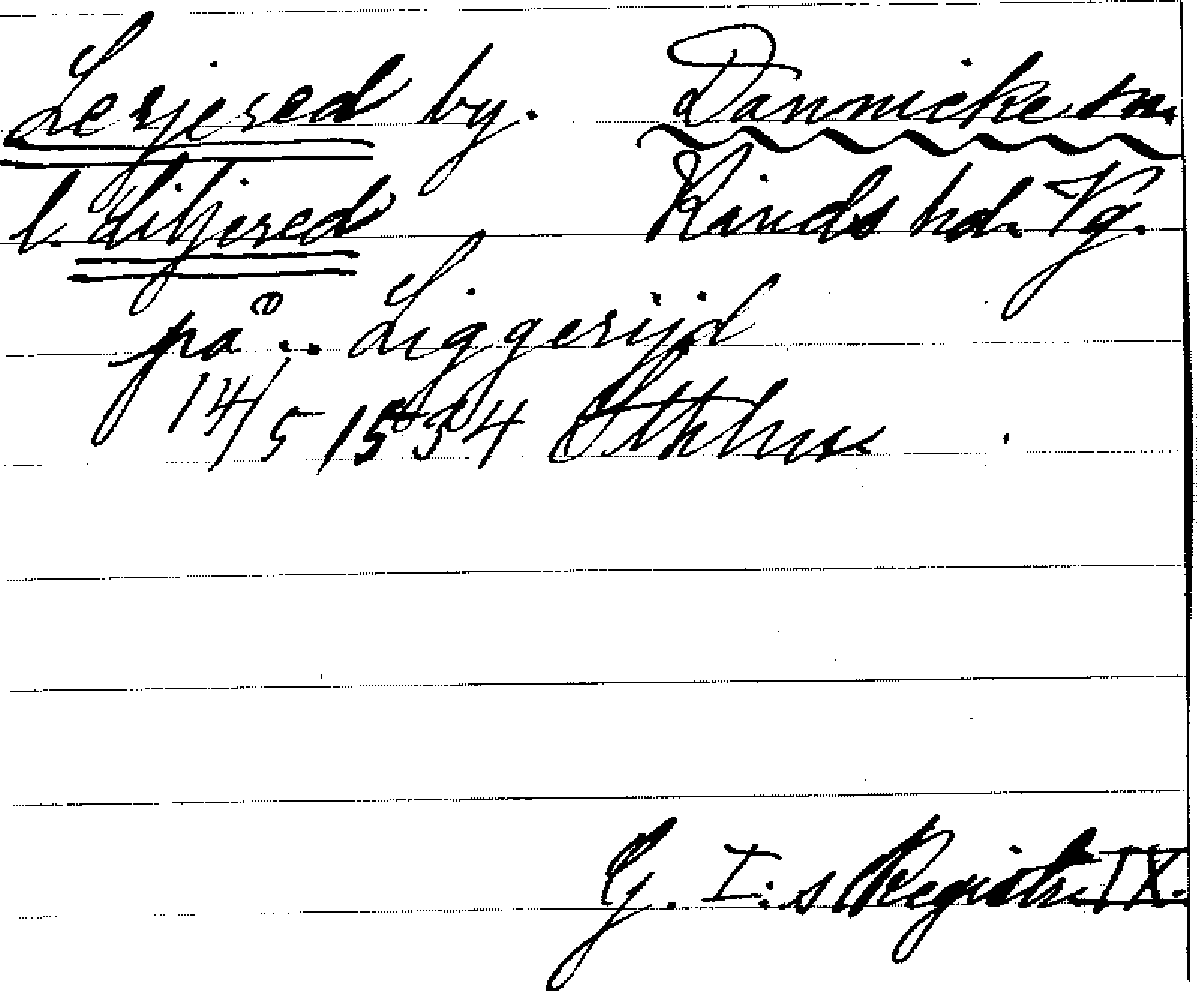 Lerjered by. Dannicke sn.
l. Liljered Kinds hd. Vg.
på .. Liggerijd
14/5 1534 Sthlm
G. I:s Registr. IX.